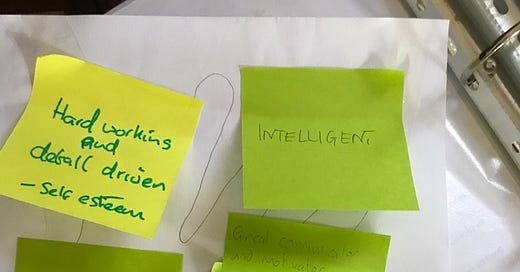 Hard working
and
detail driven
- Self esteem
INTELLIGENT
Great communicator
and motivator